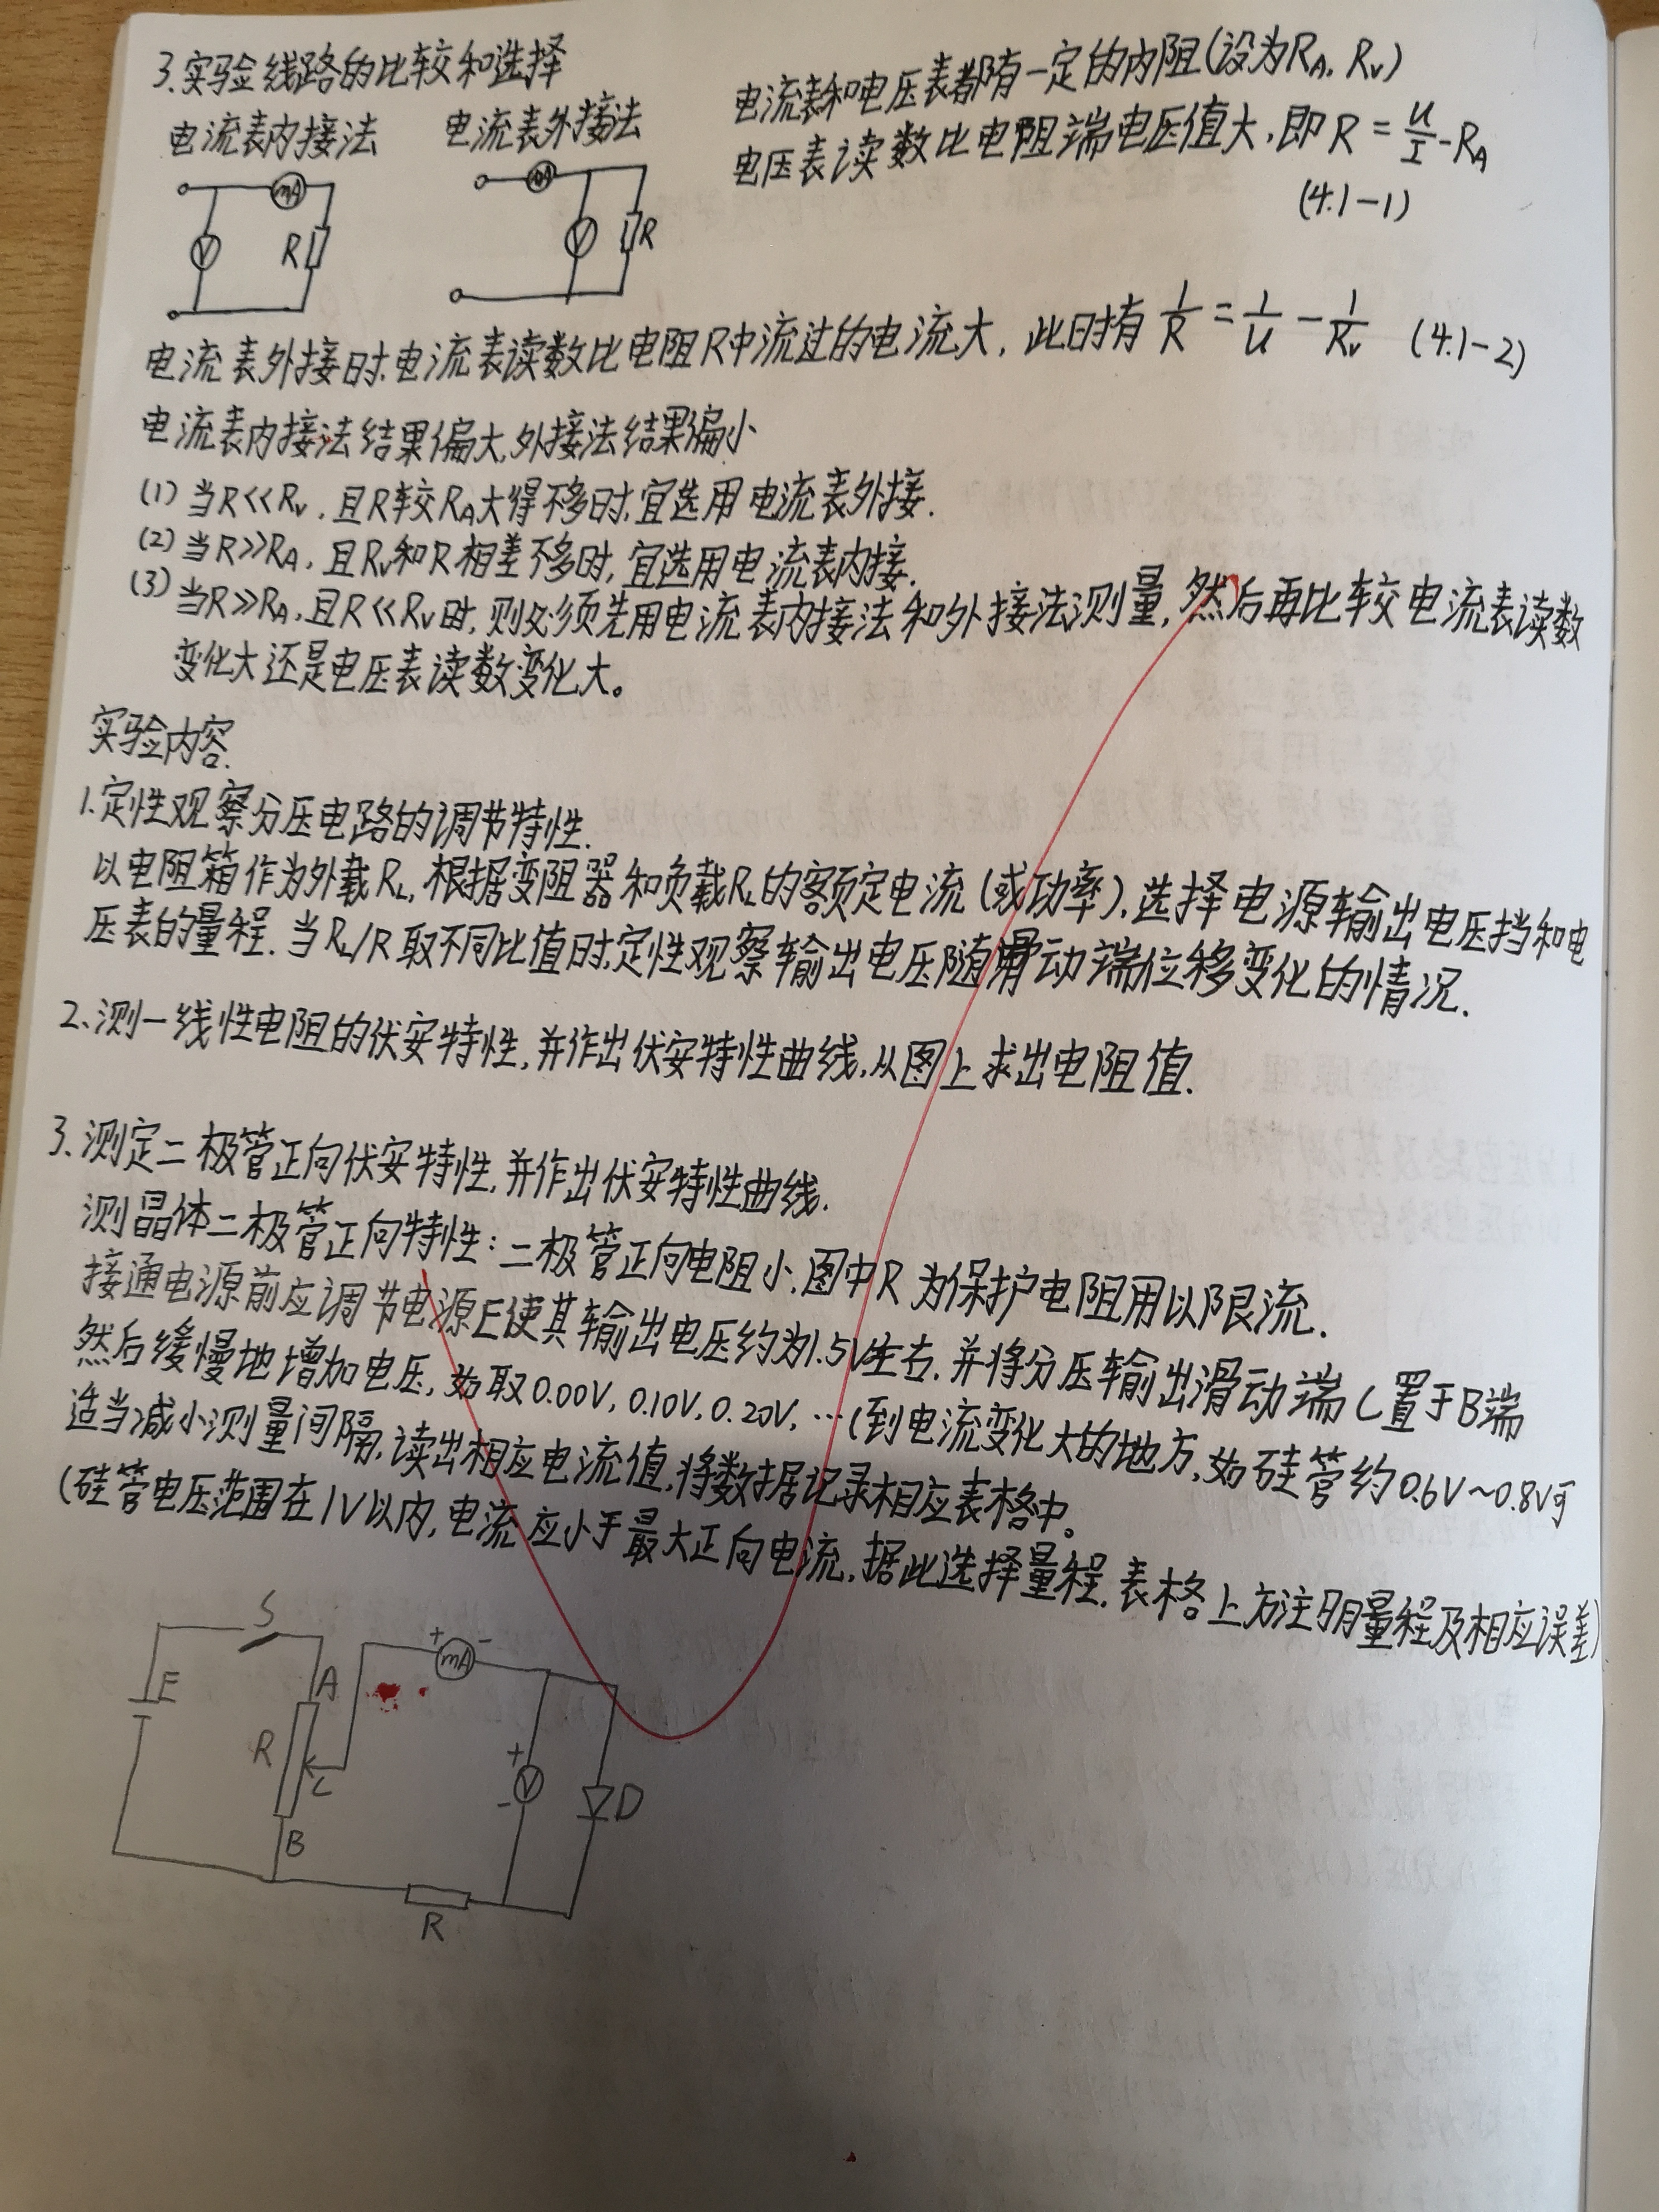 3.实验线路的比较和选择
电流表内接法
电流表外接法
mA
V
R
mA
V
R
电流表和电压表都有一定的内阻(设为R_A, R_V)
电压表读数比电阻端电压值大,即 R = U/I - R_A
(4.1-1)
电流表外接时,电流表读数比电阻R中流过的电流大, 此时有 1/R = 1/U - 1/R_V (4.1-2)
电流表内接法结果偏大,外接法结果偏小
(1) 当R<<R_V, 且R较R_A大得不多时,宜选用电流表外接.
(2) 当R>>R_A, 且R_V和R相差不多时, 宜选用电流表内接.
(3) 当R>>R_A, 且R<<R_V时, 则必须先用电流表内接法和外接法测量, 然后再比较电流表读数
变化大还是电压表读数变化大。
实验内容.
1.定性观察分压电路的调节特性.
以电阻箱作为外载R_L, 根据变阻器和负载R_L的额定电流(或功率),选择电源输出电压挡和电
压表的量程. 当R_L/R取不同比值时,定性观察输出电压随滑动端位移变化的情况.
2.测一线性电阻的伏安特性,并作出伏安特性曲线,从图上求出电阻值.
3.测定二极管正向伏安特性,并作出伏安特性曲线.
测晶体二极管正向特性:二极管正向电阻小,图中R为保护电阻用以限流.
接通电源前应调节电源E使其输出电压约为1.5V左右,并将分压输出滑动端C置于B端
然后缓慢地增加电压, 如取0.00V, 0.10V, 0.20V, …(到电流变化大的地方,如硅管约0.6V~0.8V可
适当减小测量间隔,读出相应电流值,将数据记录相应表格中。
(硅管电压范围在1V以内,电流应小于最大正向电流,据此选择量程.表格上方注明量程及相应误差)
S
E
A
R
C
B
+ mA -
+
V
-
D
R